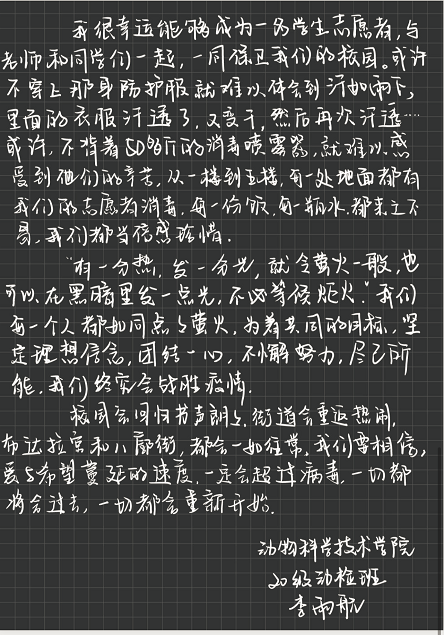 我很幸运能够成为一名学生志愿者,与
老师和同学们一起,一同保卫我们的校园。或许
不穿上那身防护服就难以体会到汗如雨下,
里面的衣服汗透了,又变干,然后再次汗透…
或许,不背着50多斤的消毒喷雾器,就难以感
受到他们的辛苦,从一楼到五楼,每一处地面都有
我们的志愿者消毒,每一份饭,每一瓶水,都来之不
易,我们都当倍感珍惜.
"有一分热,发一分光,就令萤火一般,也
可以在黑暗里发一点光,不必等候炬火."我们
每一个人都如同点点萤火,为着共同的目标,坚
定理想信念,团结一心,不懈努力,尽己所
能,我们终究会战胜疫情.
校园会回归书声朗朗,街道会重返热闹,
布达拉宫和八廓街,都会一如往常,我们要相信,
爱与希望蔓延的速度,一定会超过病毒,一切都
将会过去,一切都会重新开始.
动物科学技术学院
20级动检班
李雨航